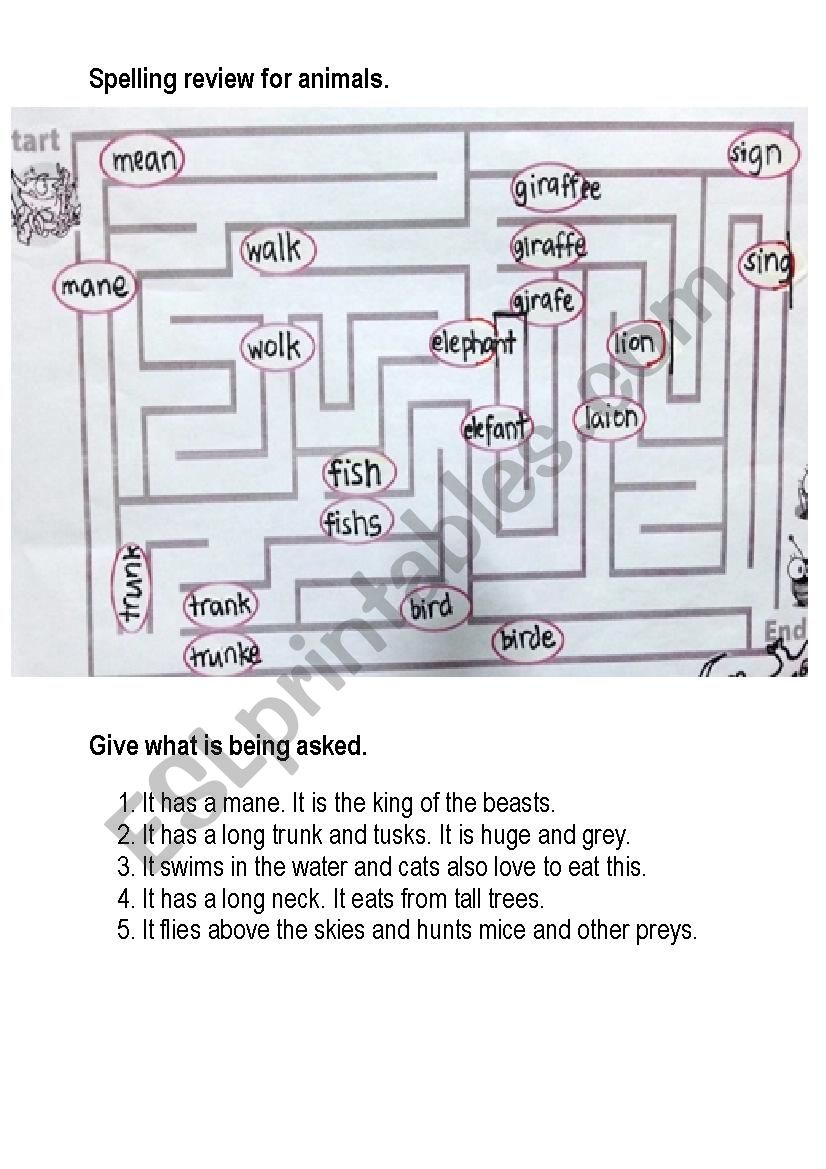 Spelling review for animals.
tart
mean
sign
giraffee
walk
giraffe
sing
mane
girafe
wolk
elephant
lion
laion
elefant
fish
fishs
trunk
trank
bird
trunke
birde
End
Give what is being asked.
1. It has a mane. It is the king of the beasts.
2. It has a long trunk and tusks. It is huge and grey.
3. It swims in the water and cats also love to eat this.
4. It has a long neck. It eats from tall trees.
5. It flies above the skies and hunts mice and other preys.
ESLprintables.com